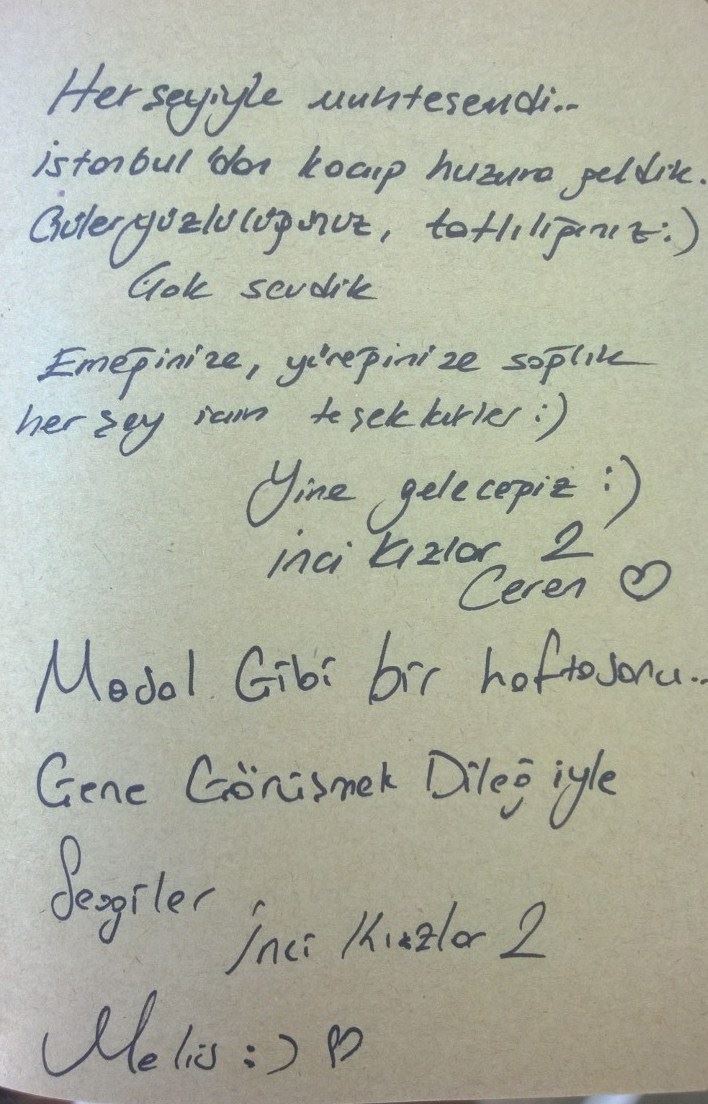 Herşeyiyle muhteşemdi..
İstanbul'dan kaçıp huzura geldik.
Güleryüzlülüğünüz, tatlılığınız :)
Çok sevdik
Emeğinize, yüreğinize sağlık
her şey için teşekkürler :)
Yine geleceğiz :)
inci kızlar 2
Ceren ♡
Masal Gibi bir haftasonu..
Gene Görüşmek Dileğiyle
Sevgiler
İnci Kızlar 2
Melis :) ♡